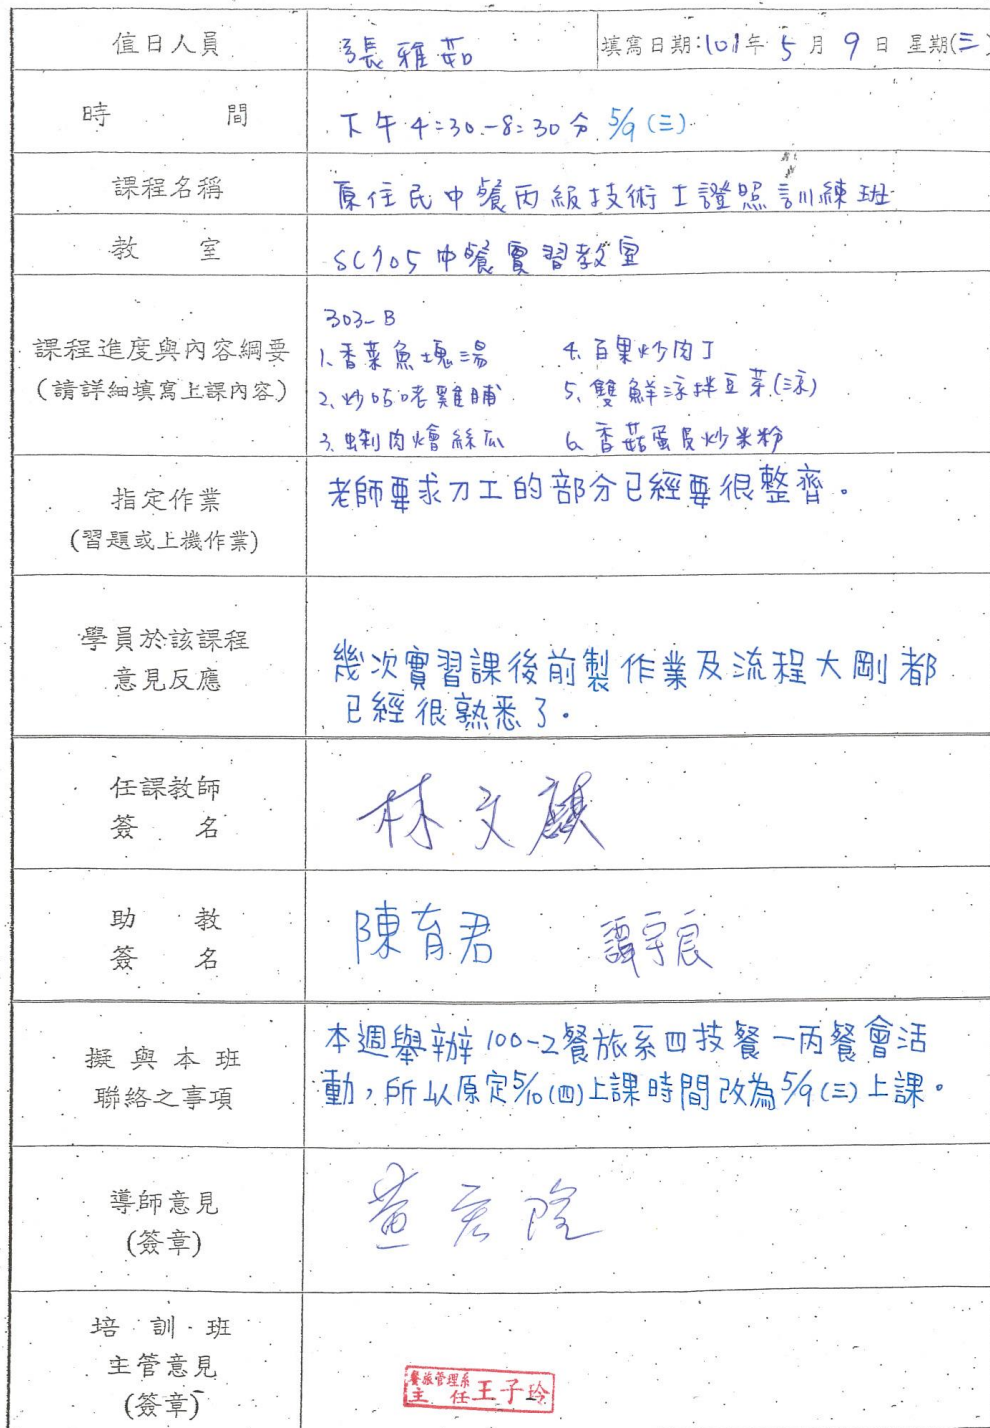 值日人員 張雅茹 填寫日期:101年5月9日 星期(三)
時 間 下午4:30-8:30分 5/9(三)
課程名稱 原住民中餐丙級技術士證照訓練班
教 室 SC705中餐實習教室
課程進度與內容綱要
(請詳細填寫上課內容)
303-B
1.香菜魚塊湯 4.百果炒肉丁
2.炒咕咾雞脯 5.雙鮮涼拌豆芽(涼)
3.蜊肉燴絲瓜 6.香菇蛋皮炒米粉
指定作業
(習題或上機作業)
老師要求刀工的部分已經要很整齊。
學員於該課程
意見反應
幾次實習課後前製作業及流程大剛都
已經很熟悉了。
任課教師
簽 名
林文麒
助 教
簽 名
陳育君 譚宇宸
擬與本班
聯絡之事項
本週舉辦100-2餐旅系四技餐一丙餐會活
動,所以原定5/10(四)上課時間改為5/9(三)上課。
導師意見
(簽章)
黃宏隆
培訓班
主管意見
(簽章)
餐旅管理系
主任王子玲